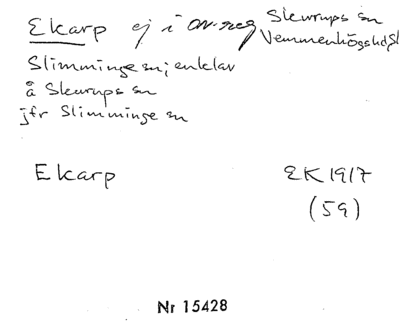 Ekarp ej i ON-reg Skurups sn
Vemmenhögs hd
Slimminge sn; enklav
å Skurups sn
jfr Slimminge sn
Ekarp EK 1917
(59)
Nr 15428